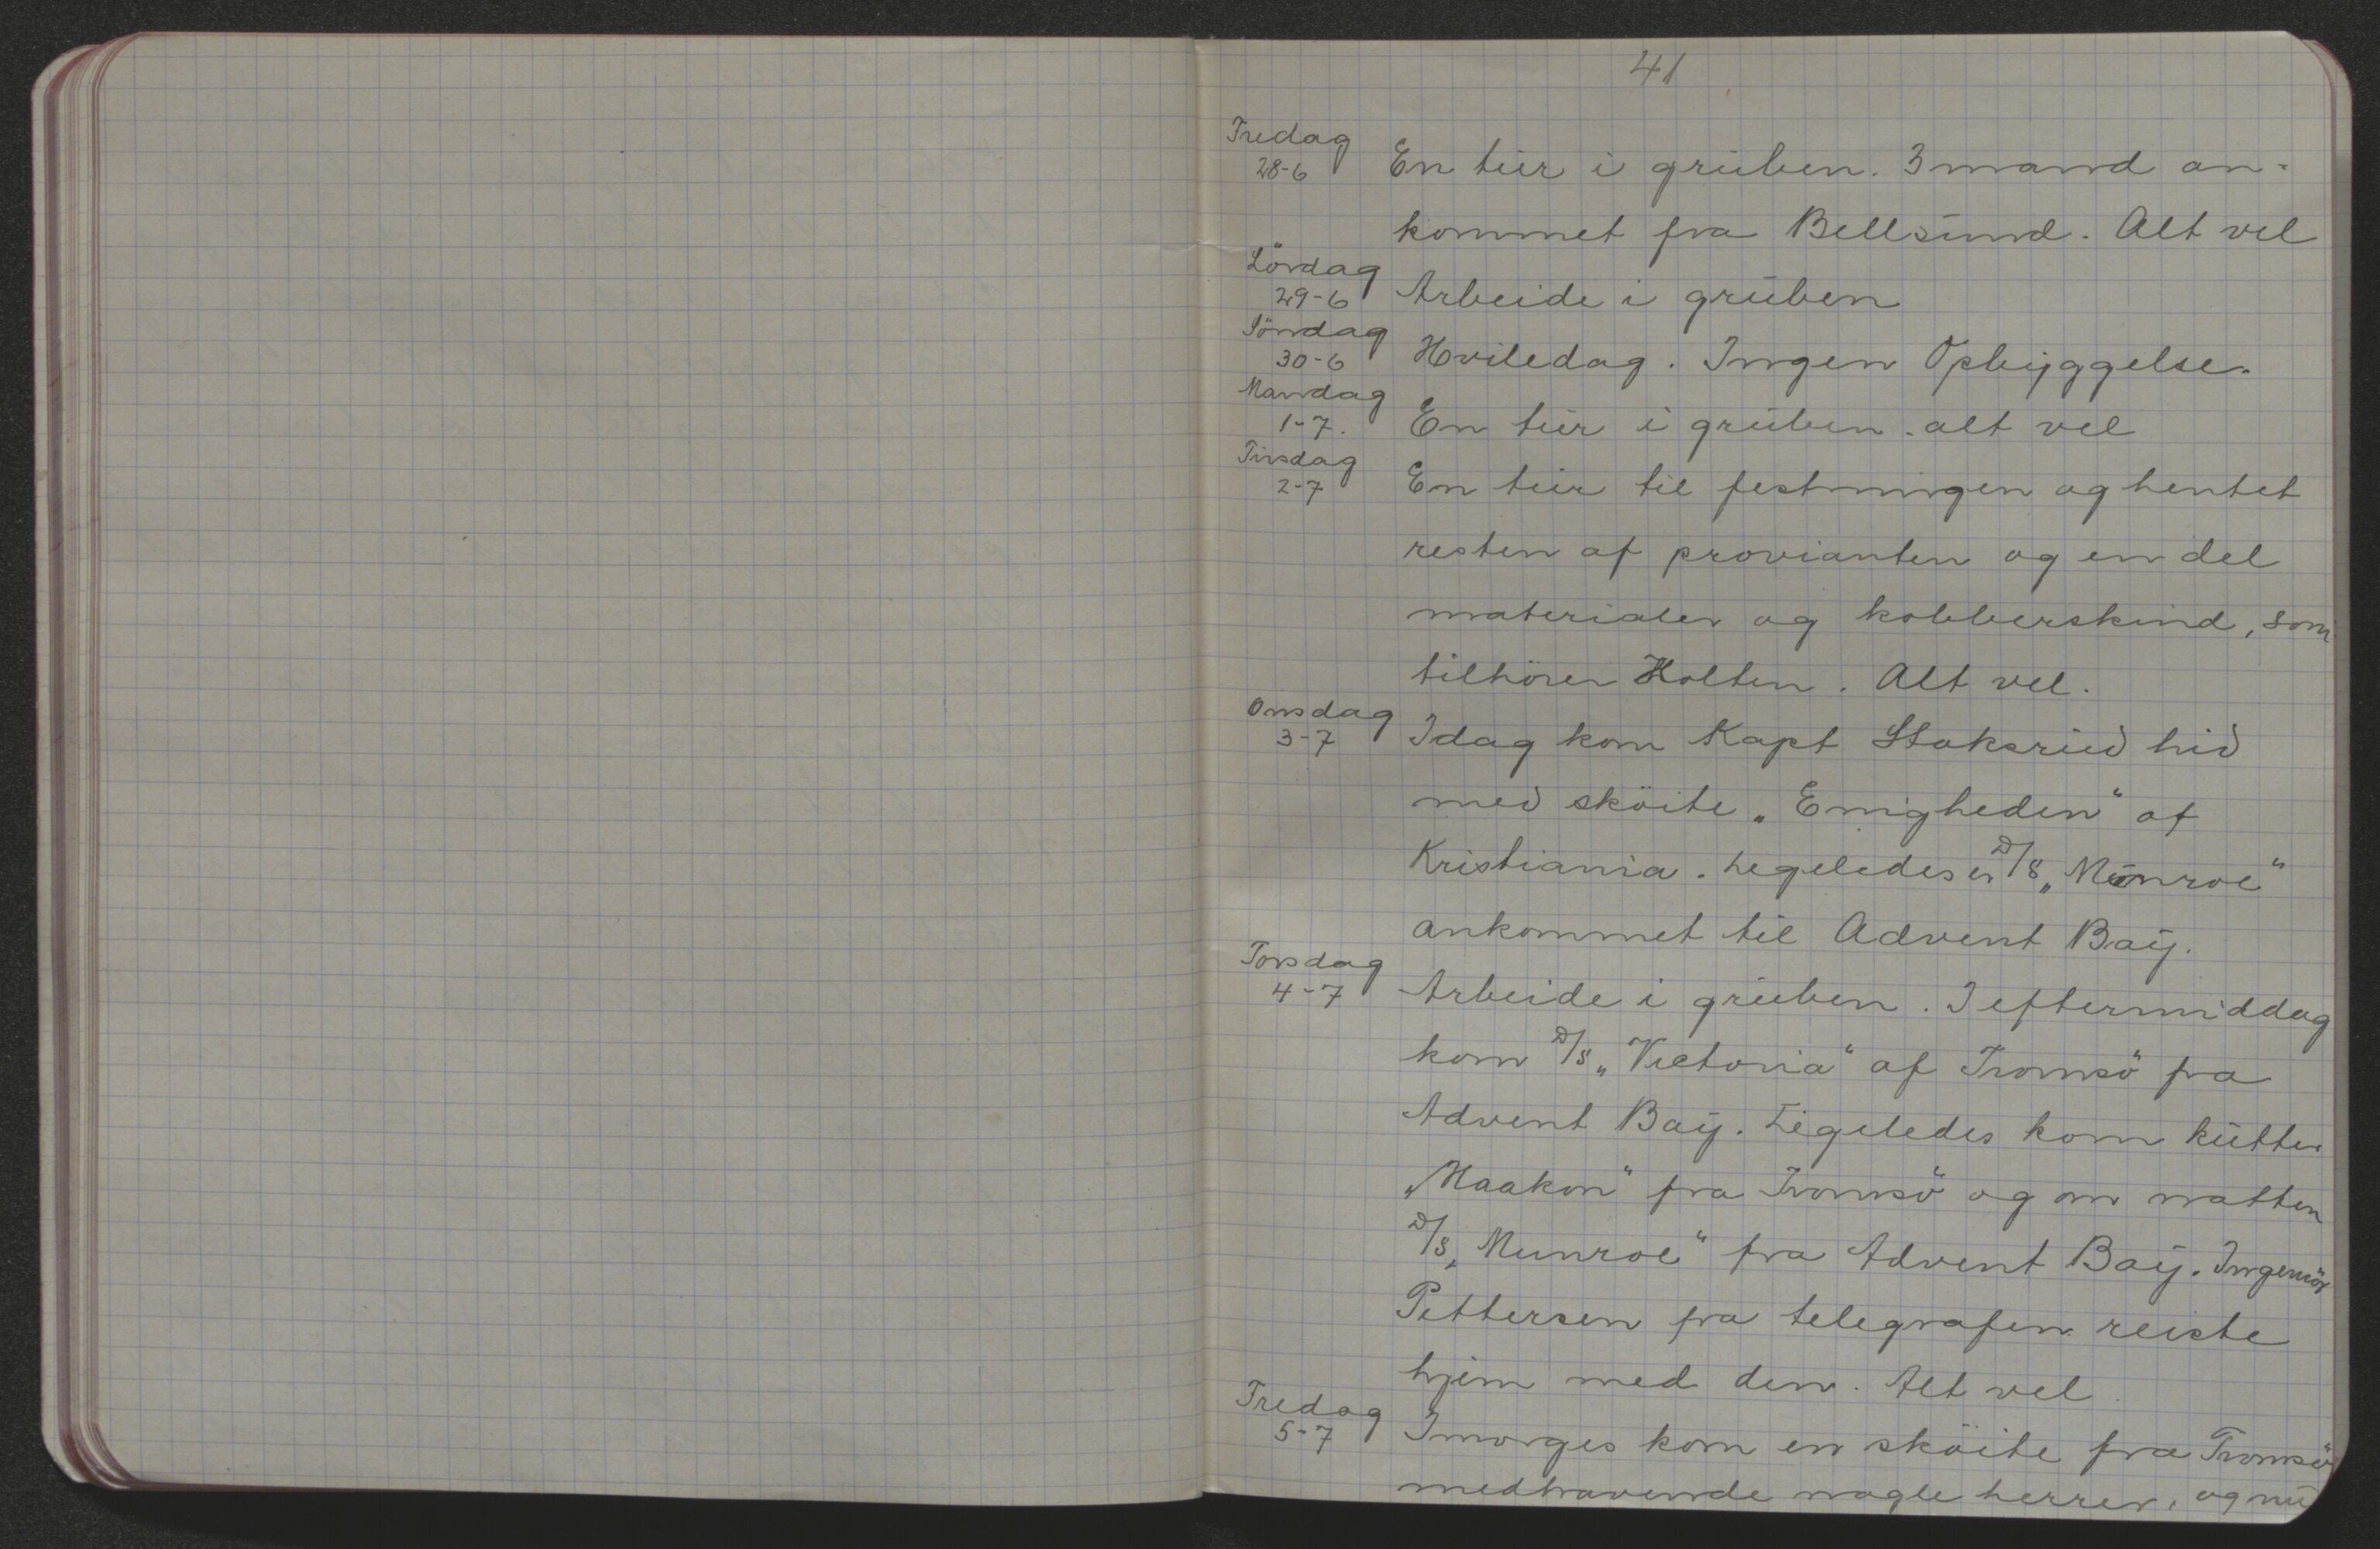 41
Fredag
28-6 En tür i grüben. 3 mand an-
kommet fra Bellsünd. Alt vel
Lördag
29-6 Arbeide i grüben
Söndag
30-6 Hviledag. Ingen Opbyggelse.
Mandag
1-7. En tür i grüben. alt vel
Tirsdag
2-7 En tür til festningen og hentet
resten af provianten og en del
materialer og kobberskind, som
tilhörer Holten. Alt vel.
Onsdag
3-7 Idag kom Kapt Staksrüd hid
med sköite „Enigheden“ af
Kristiania. Legeledes er D/S „Münroe“
ankommet til Advent Bay.
Torsdag
4-7 Arbeide i grüben. I eftermiddag
kom D/S „Victoria“ af Tromsö fra
Advent Bay. Ligeledes kom kütter
„Haakon“ fra Tromsö og om natten
D/S „Munroe“ fra Advent Bay. Ingeniör
Pettersen fra telegrafen reiste
hjem med den. Alt vel.
Fredag
5-7 Imorges kom en sköite fra Tromsö
medhavende nogle herrer, og nü